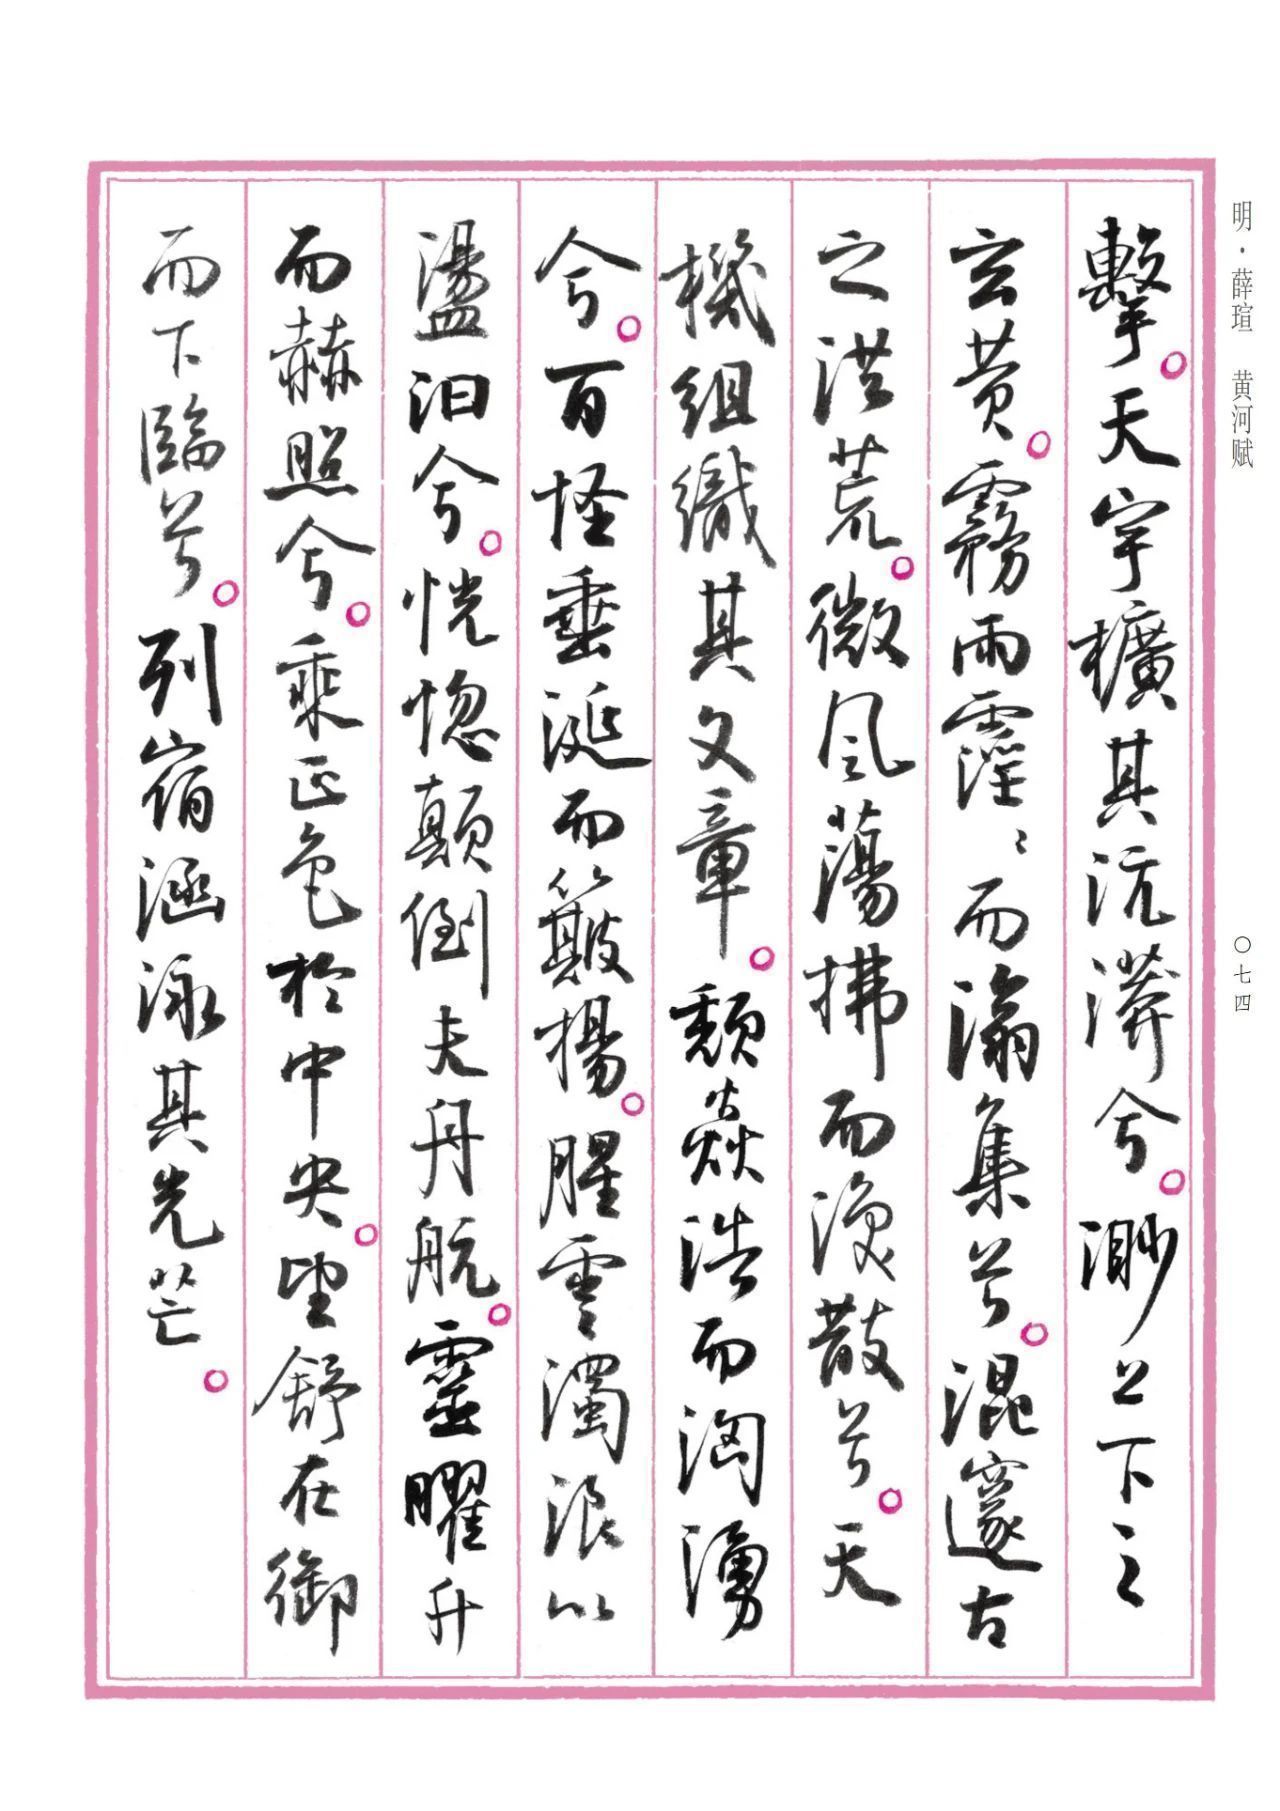 明·薛瑄 黄河赋
〇七四
擊。天宇擴其沆漭兮。渺上下之
玄黄。霧雨霪〻而瀹集兮。混邃古
之洪荒。微風蕩拂而渙散兮。天
機組織其文章。頹焱浩而洶湧
兮。百怪垂涎而簸揚。腥雲濁浪以
盪汩兮。恍惚顛倒夫舟航。靈曜升
而赫照兮。乘正色於中央。望舒在御
而下臨兮。列宿涵泳其光芒。